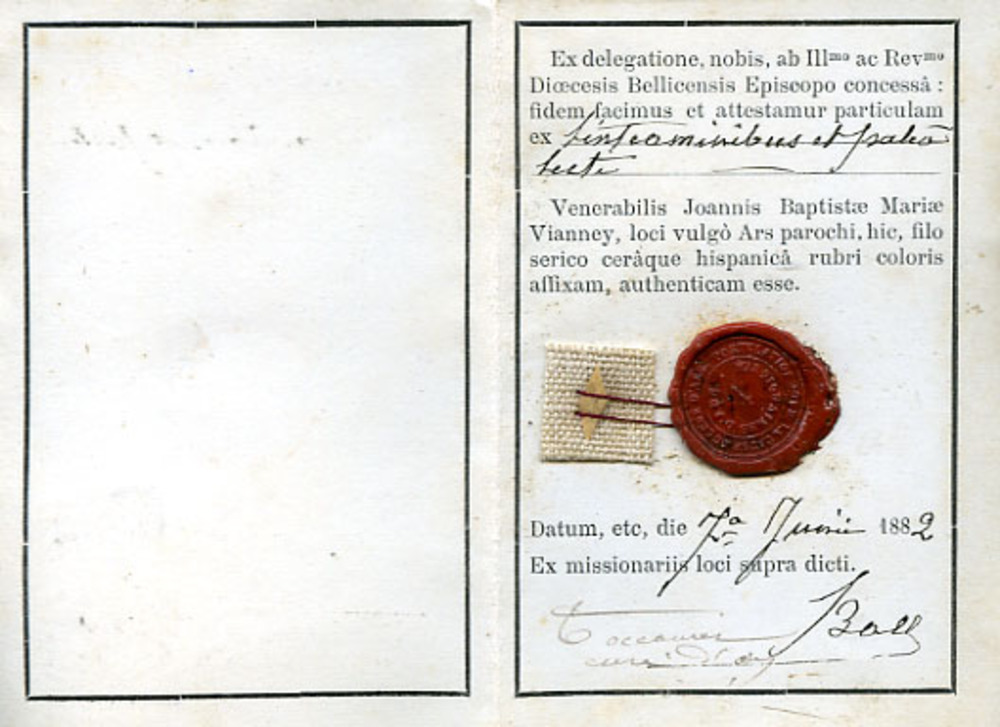 Ex delegatione, nobis, ab Illmo ac Revmo
Diœcesis Bellicensis Episcopo concessâ :
fidem facimus et attestamur particulam
ex linteaminibus et paleâ
Venerabilis Joannis Baptistæ Mariæ
Vianney, loci vulgò Ars parochi, hic, filo
serico cerâque hispanicâ rubri coloris
affixam, authenticam esse.
Datum, etc, die 7a Junii 1882
Ex missionariis loci supra dicti.
Ball
Toccanier